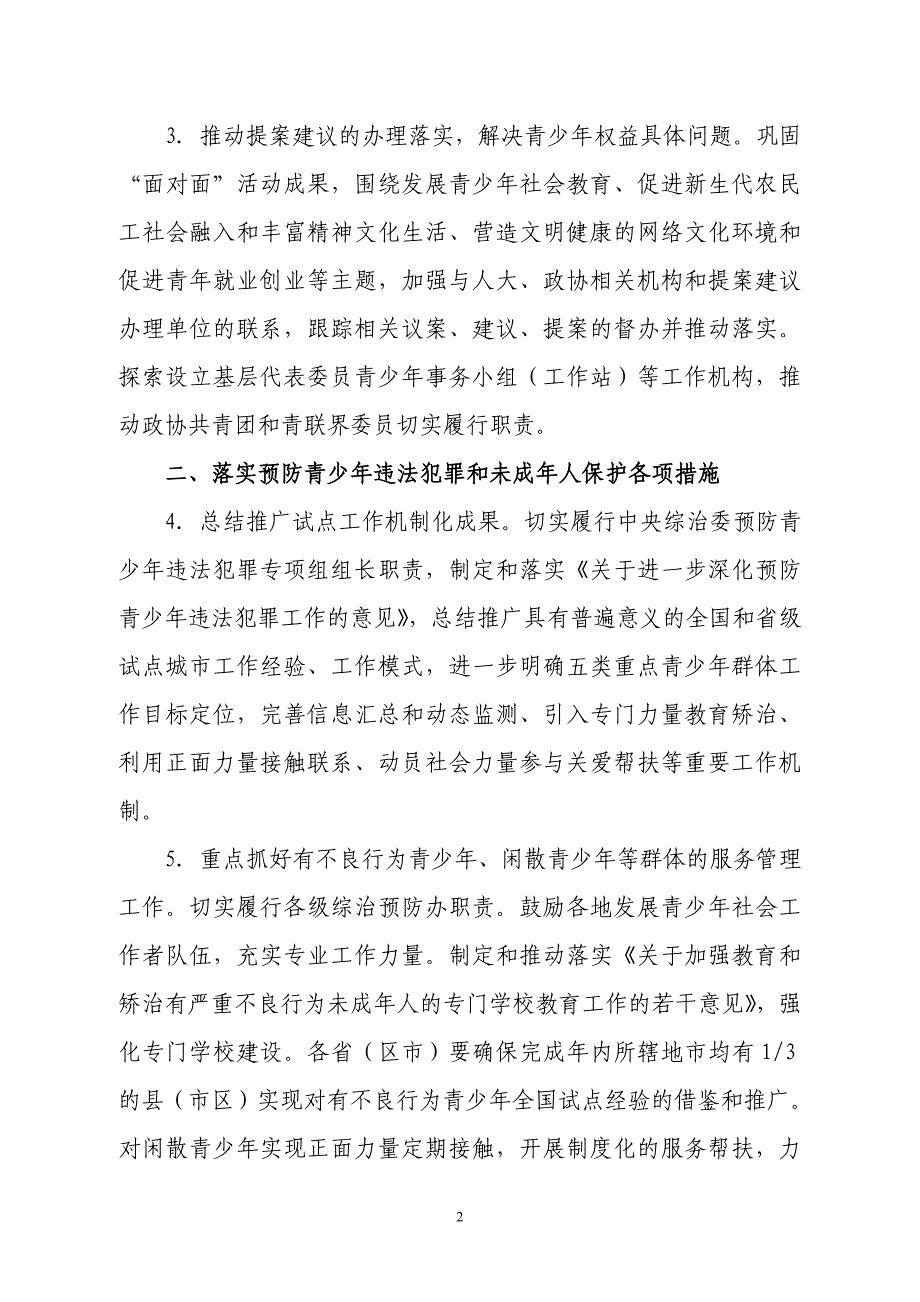 3. 推动提案建议的办理落实，解决青少年权益具体问题。巩固
“面对面”活动成果，围绕发展青少年社会教育、促进新生代农民
工社会融入和丰富精神文化生活、营造文明健康的网络文化环境和
促进青年就业创业等主题，加强与人大、政协相关机构和提案建议
办理单位的联系，跟踪相关议案、建议、提案的督办并推动落实。
探索设立基层代表委员青少年事务小组（工作站）等工作机构，推
动政协共青团和青联界委员切实履行职责。
二、落实预防青少年违法犯罪和未成年人保护各项措施
4. 总结推广试点工作机制化成果。切实履行中央综治委预防青
少年违法犯罪专项组组长职责，制定和落实《关于进一步深化预防
青少年违法犯罪工作的意见》，总结推广具有普遍意义的全国和省级
试点城市工作经验、工作模式，进一步明确五类重点青少年群体工
作目标定位，完善信息汇总和动态监测、引入专门力量教育矫治、
利用正面力量接触联系、动员社会力量参与关爱帮扶等重要工作机
制。
5. 重点抓好有不良行为青少年、闲散青少年等群体的服务管理
工作。切实履行各级综治预防办职责。鼓励各地发展青少年社会工
作者队伍，充实专业工作力量。制定和推动落实《关于加强教育和
矫治有严重不良行为未成年人的专门学校教育工作的若干意见》，强
化专门学校建设。各省（区市）要确保完成年内所辖地市均有 1/3
的县（市区）实现对有不良行为青少年全国试点经验的借鉴和推广。
对闲散青少年实现正面力量定期接触，开展制度化的服务帮扶，力
2